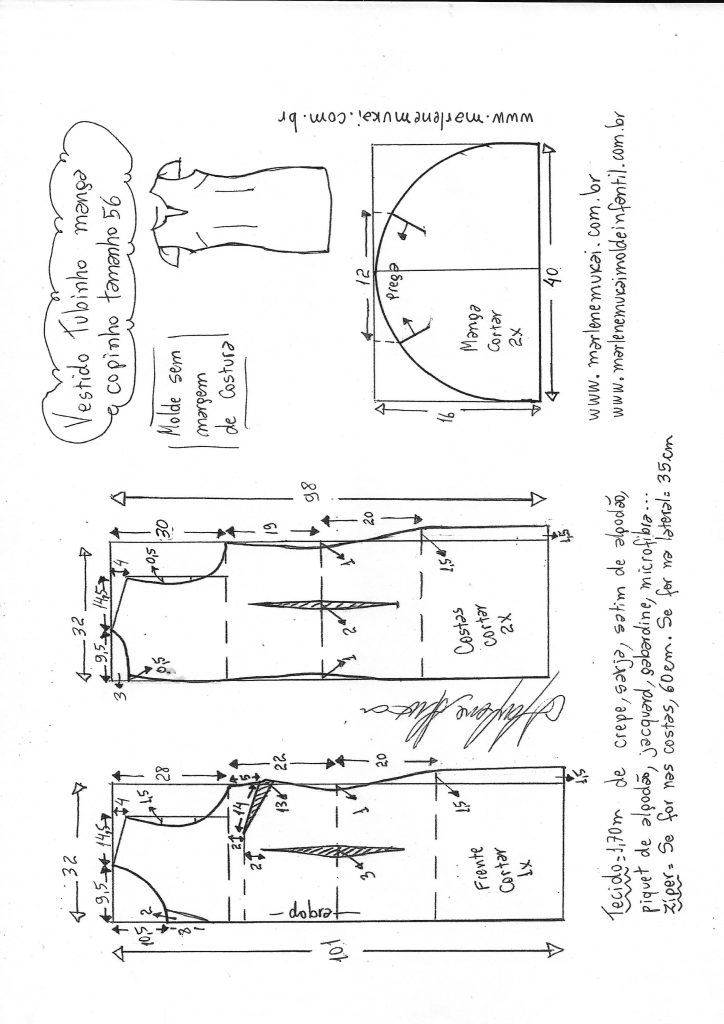 Vestido Tubinho manga
copinho tamanho 56
Molde sem
margem
de costura
www.marlenemukai.com.br
12
Prega
Manga
Cortar
2X
16
40
www.marlenemukai.com.br
www.marlenemukaimoldeinfantil.com.br
32
9,5
14,5
4
3
0,5
0,5
30
19
20
98
1
1
2
1,5
1,5
Costas
Cortar
2X
32
9,5
14,5
4
1,5
28
22
20
5
14
13
2
2
3
1
1,5
1,5
10,5
8
2
101
dobra
Frente
Cortar
1X
Tecido=1,70m de crepe, sarja, satim de algodão,
piquet de algodão, jacquard, gabardine, microfibra...
Zíper= Se for nas costas, 60cm. Se for na lateral= 35cm